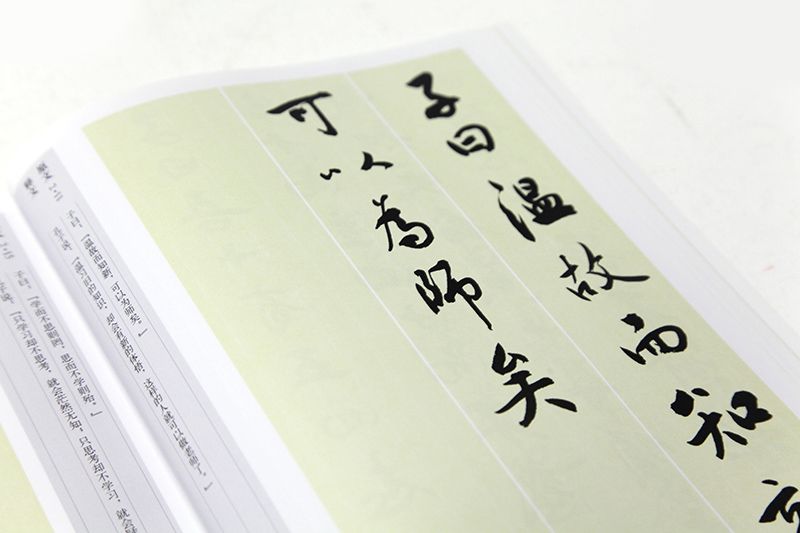 子曰温故而知
可以為師矣
原文 2·11 子曰：「温故而知新，可以为师矣。」
译文 孔子说：「温习旧的知识，却会有新的体悟，这样的人就可以做老师了。」
子曰：「学而不思则罔，思而不学则殆。」
孔子说：「只学习却不思考，就会茫然无知，只思考却不学习，就会